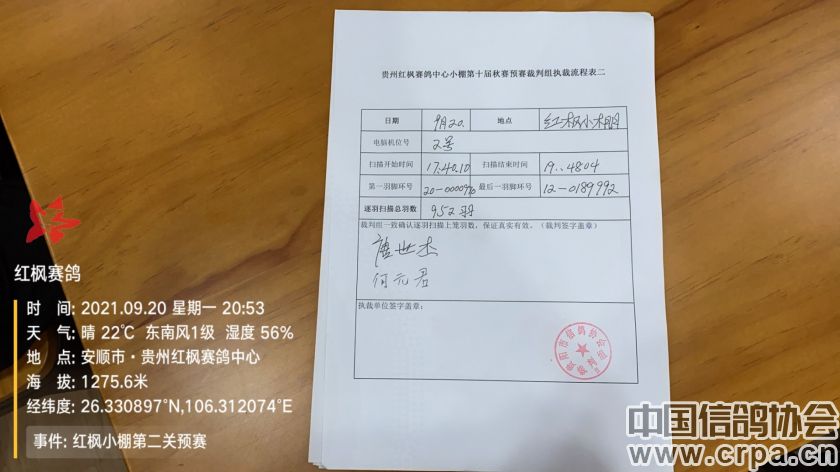 贵州红枫赛鸽中心小棚第十届秋赛预赛裁判组执裁流程表二
日期 9月20. 地点 红枫小棚
电脑机位号 2号
扫描开始时间 17:40.10 扫描结束时间 19..4804
第一羽脚环号 最后一羽脚环号 12-0189992
逐羽扫描总羽数 952羽
裁判组一致确认逐羽扫描上笼羽数，保证真实有效。（裁判签字盖章）
唐世杰
何元君
执裁单位签字盖章：
红枫赛鸽
时 间: 2021.09.20 星期一 20:53
天 气: 晴 22℃ 东南风1级 湿度 56%
地 点: 安顺市·贵州红枫赛鸽中心
海 拔: 1275.6米
经纬度: 26.330897°N,106.312074°E
事件: 红枫小棚第二关预赛
中国信鸽协会
www.crpa.cn